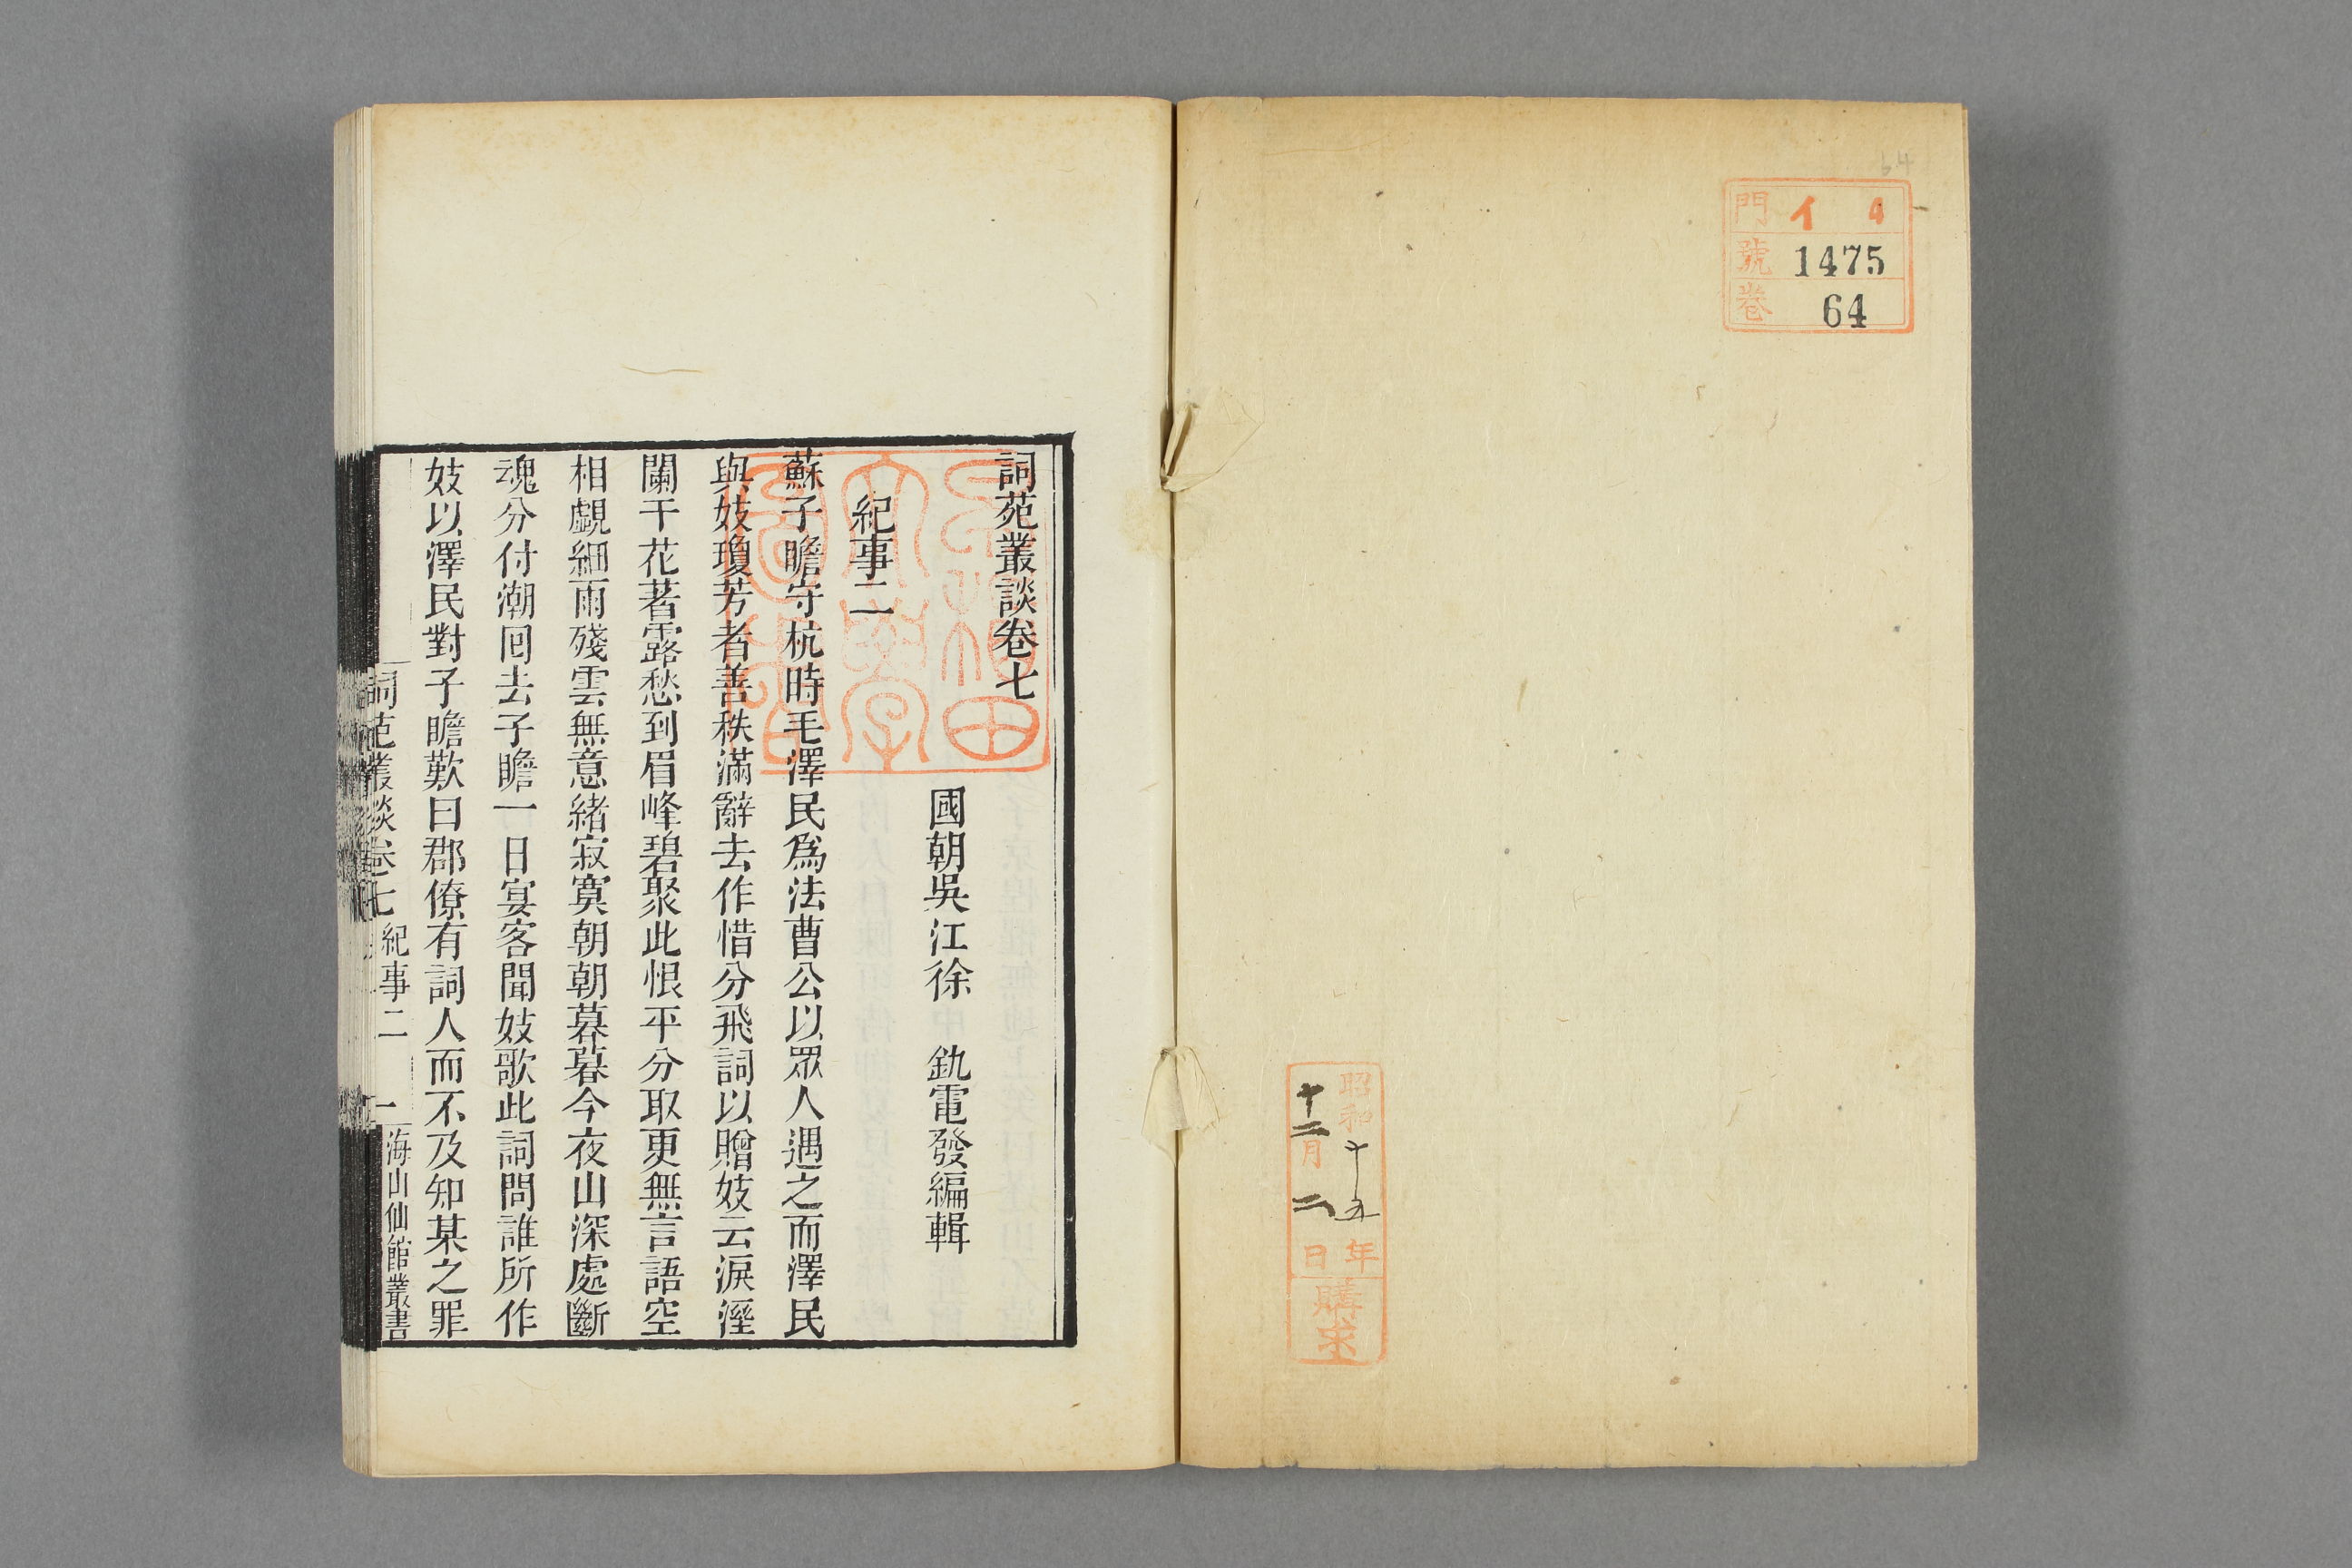 64
門 イ 4
號 1475
卷 64
昭和十五年
十二月二日
購求
詞苑叢談卷七
國朝吳江徐 釚電發編輯
紀事二
蘇子瞻守杭時毛澤民爲法曹公以眾人遇之而澤民
與妓瓊芳者善秩滿辭去作惜分飛詞以贈妓云淚溼
闌干花著露愁到眉峰碧聚此恨平分取更無言語空
相覷細雨殘雲無意緒寂寞朝朝暮暮今夜山深處斷
魂分付潮囘去子瞻一日宴客聞妓歌此詞問誰所作
妓以澤民對子瞻歎曰郡僚有詞人而不及知某之罪
詞苑叢談卷七 紀事二 一 海山仙館叢書
早稻田
大學
圖書